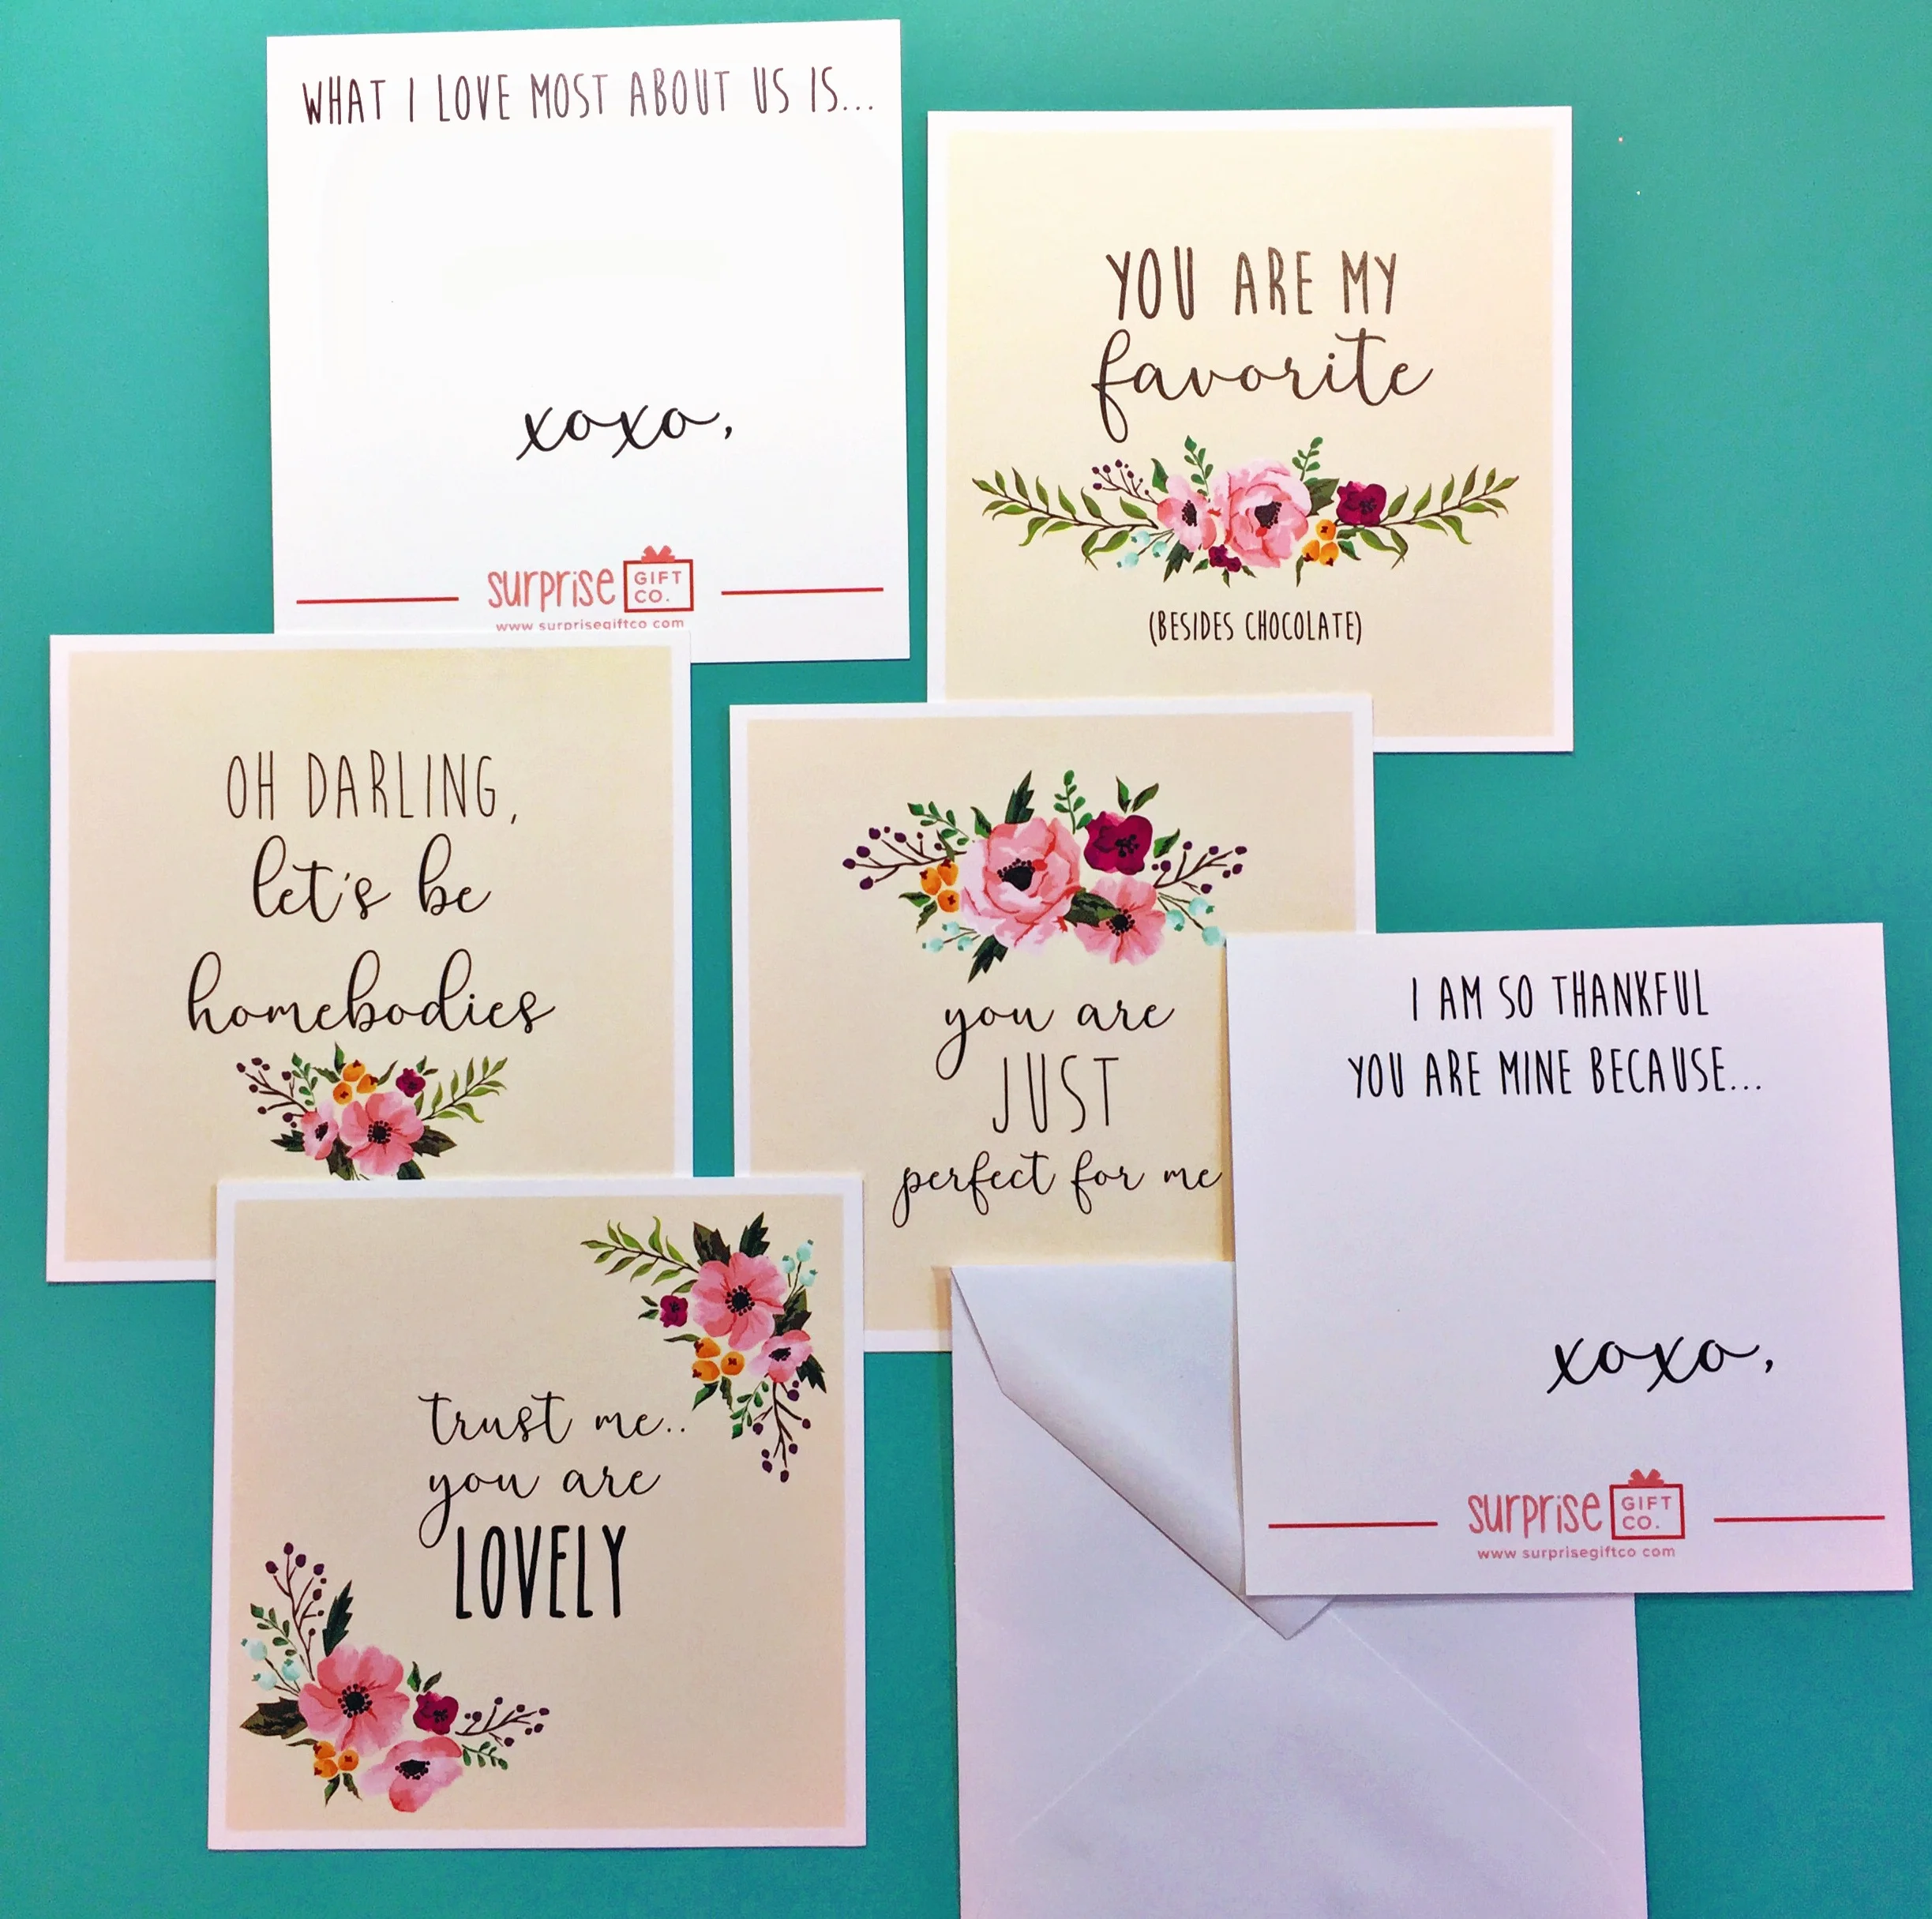 WHAT I LOVE MOST ABOUT US IS...
xoxo,
surprise GIFT CO.
www surprisegiftco com
YOU ARE MY
favorite
(BESIDES CHOCOLATE)
OH DARLING,
let's be
homebodies
you are
JUST
perfect for me
I AM SO THANKFUL
YOU ARE MINE BECAUSE...
xoxo,
surprise GIFT CO.
www surprisegiftco com
trust me..
you are
LOVELY